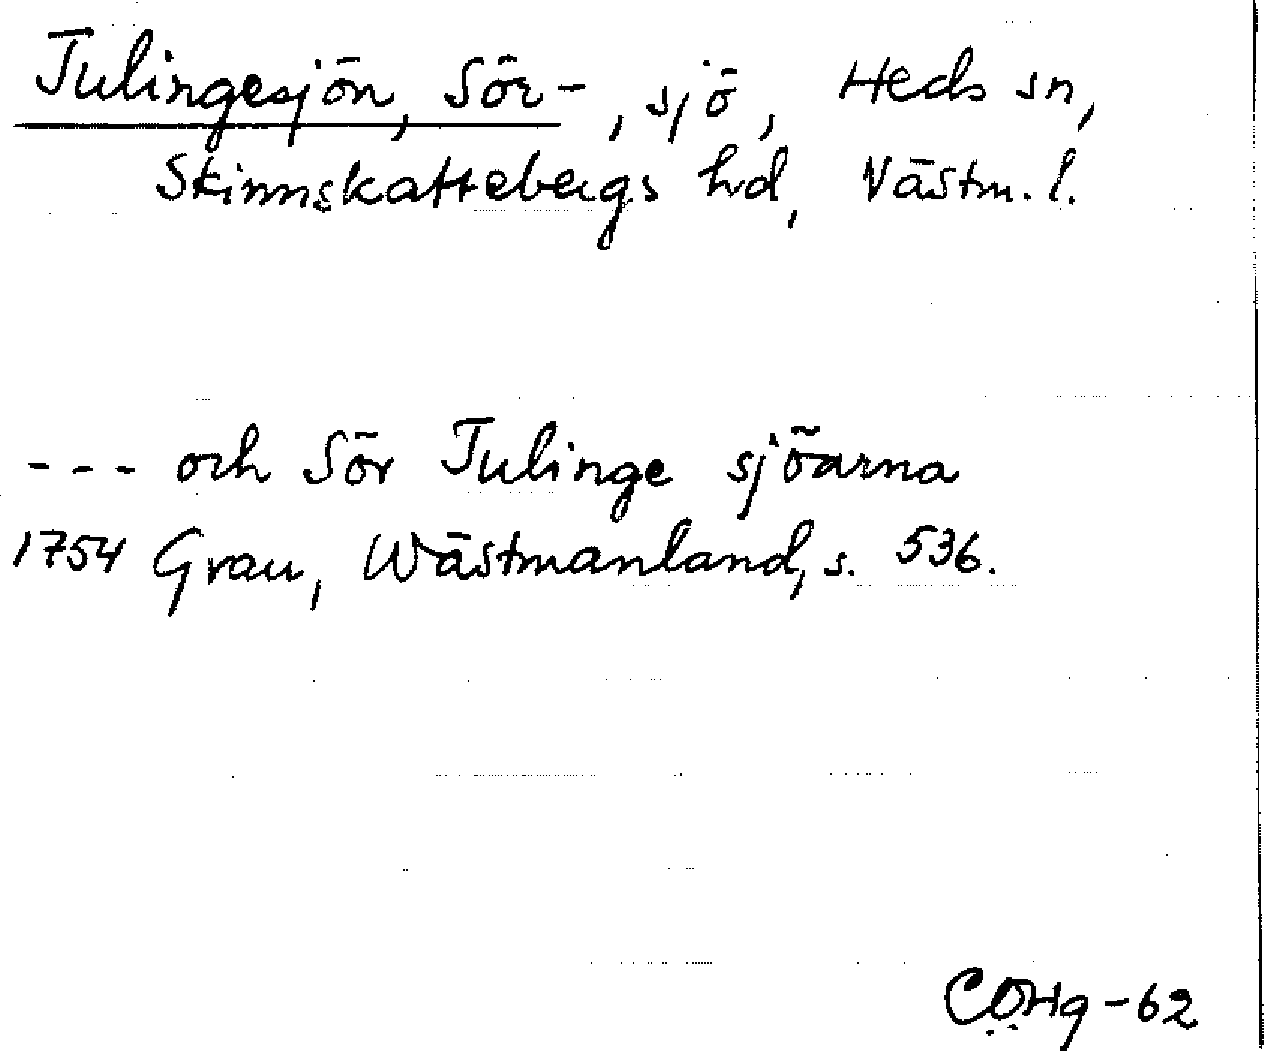 Julingesjön, Sör-, sjö, Heds sn,
Skinnskattebergs hd, Västm. l.
--- och Sör Julinge sjöarna
1754 Grau, Wästmanland, s. 536.
CÖHg-62